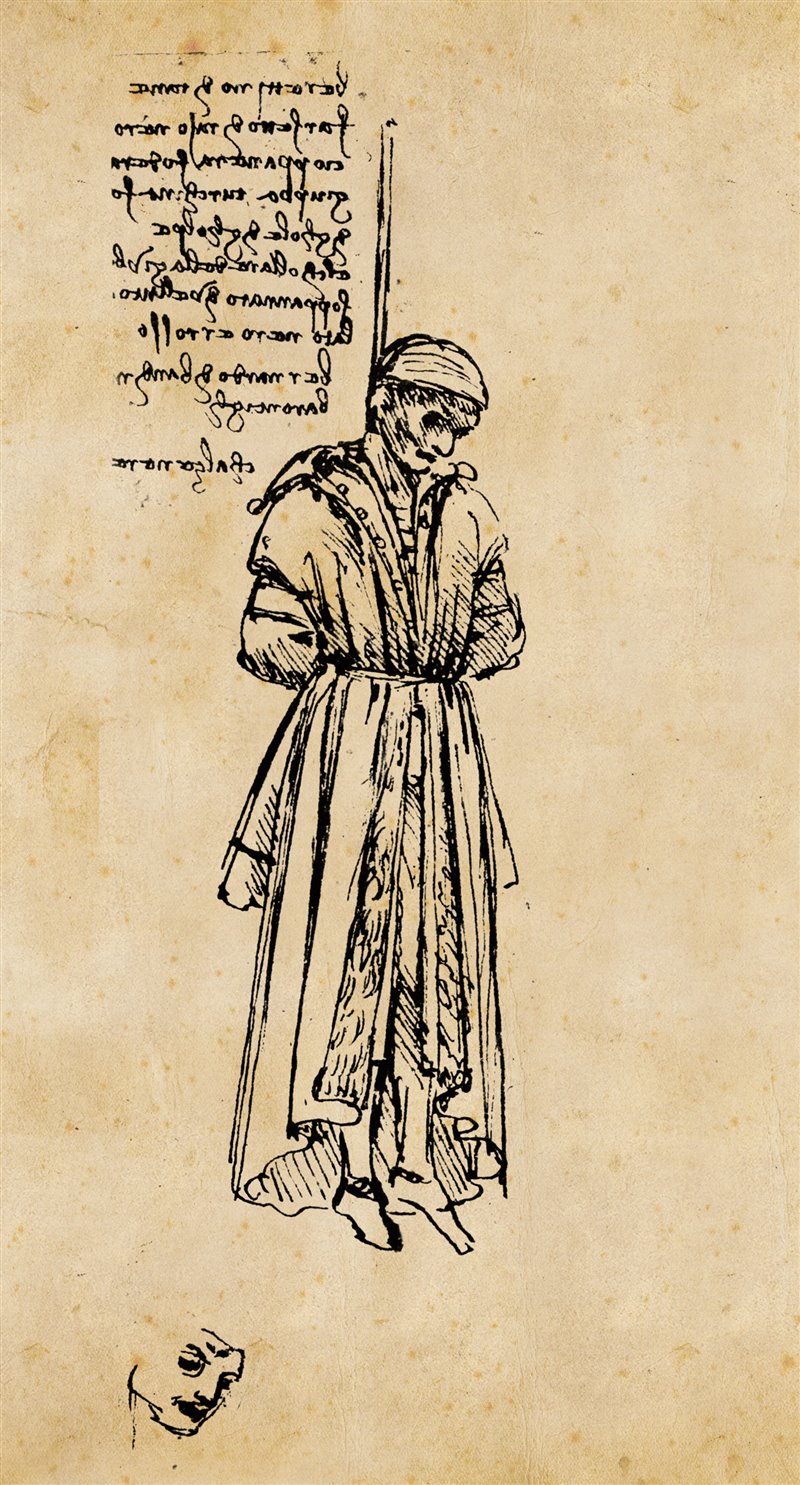 berettino di tane
farsetto di raso nero
cioppa nera fodera
giuppa turchina fo
di gole di golpe
el chollare della giub
soppannato di velluto
nero e rosso
bernardo di bandin
baroncigli
chalze nere